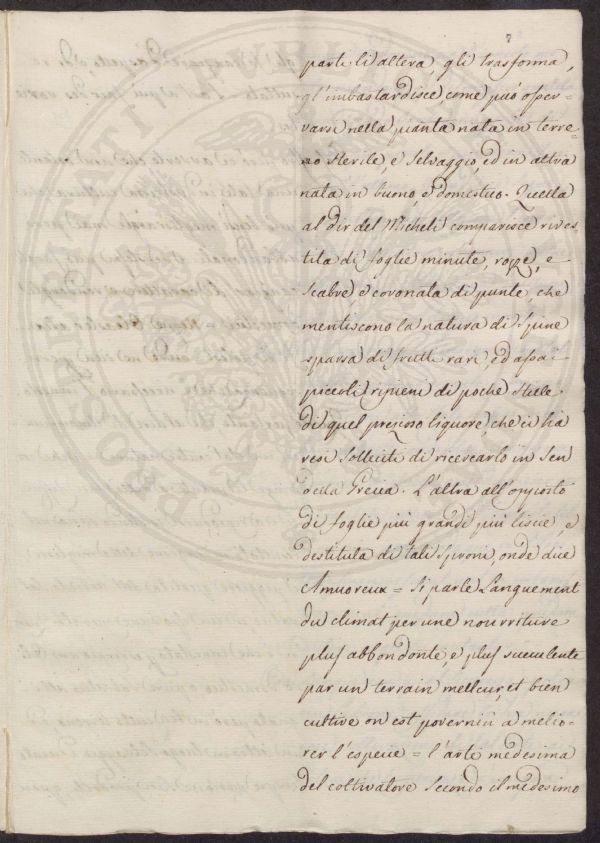 7
parti li altera, gli trasforma,
gl'imbastardisce come può osser=
varsi nella pianta nata in terre=
no sterile, e selvaggio, ed in altra
nata in buono, e domestico. Quella
al dir del Micheli comparisce rives
tita di foglie minute, rozze, e
scabre e coronata di punte, che
mentiscono la natura di spine
sparsa di frutti rari, ed assai
piccoli ripieni di poche stille
di quel prezioso liquore, che ci ha
resi solleciti di ricercarlo in sen
della Grecia. L'altra all'opposto
di foglie più grandi più liscie, e
destituta di tali sproni, onde dice
Amuoreux = Si parle Languement
du climat per une nourriture
plus abbondonte, e plus succulente
par un terrain melleur, et bien
cultive on est poverniù a melio=
rer l'espece = l'arte medesima
del coltivatore secondo il medesimo